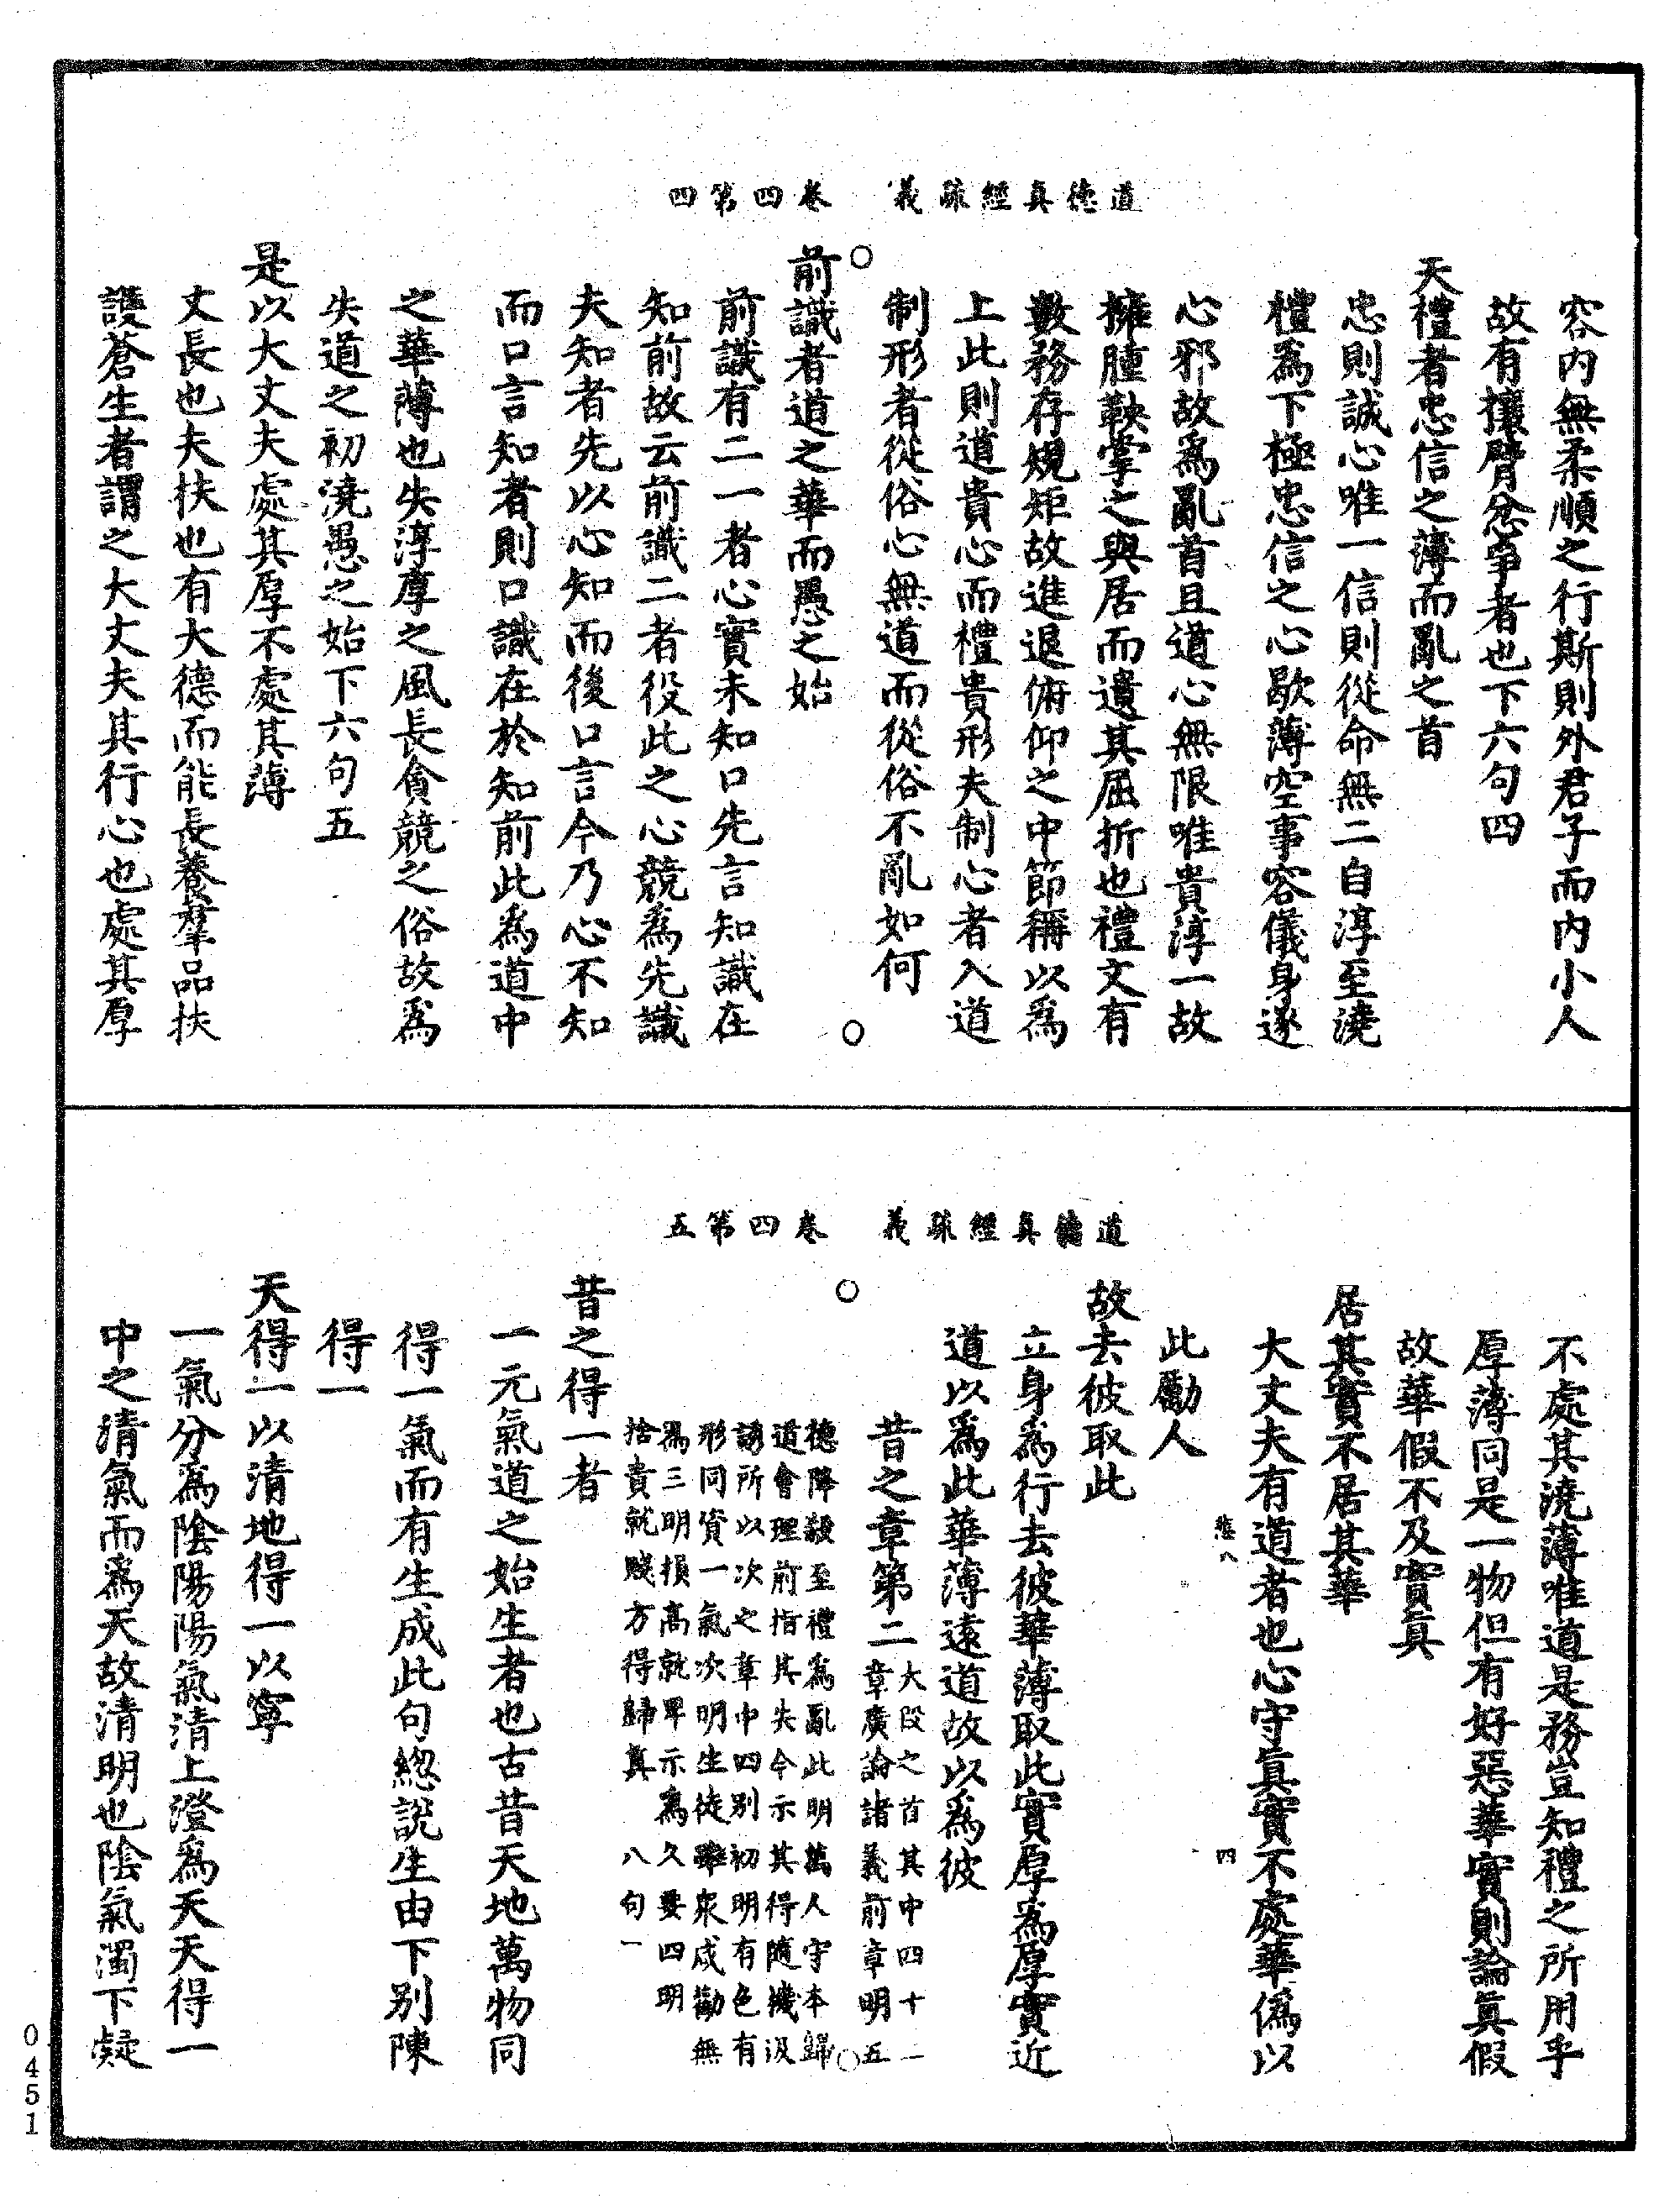 道德真經疏義　卷四第四
容內無柔順之行斯則外君子而內小人
故有攘臂忿爭者也下六句四
夫禮者忠信之薄而亂之首
忠則誠心唯一信則從命無二自淳至澆
禮爲下極忠信之心歇薄空事容儀身遂
心邪故爲亂首且道心無限唯貴淳一故
擁腫鞅掌之與居而遺其屈折也禮文有
數務存規矩故進退俯仰之中節稱以爲
上此則道貴心而禮貴形夫制心者入道
制形者從俗心無道而從俗不亂如何
○　○
前識者道之華而愚之始
前識有二一者心實未知口先言知識在
知前故云前識二者役此之心競爲先識
夫知者先以心知而後口言今乃心不知
而口言知者則口識在於知前此爲道中
之華薄也失淳厚之風長貪競之俗故爲
失道之初澆愚之始下六句五
是以大丈夫處其厚不處其薄
丈長也夫扶也有大德而能長養羣品扶
護蒼生者謂之大丈夫其行心也處其厚
道德真經疏義　卷四第五
不處其澆薄唯道是務豈知禮之所用乎
厚薄同是一物但有好惡華實則論真假
故華假不及實真
居其實不居其華
大丈夫有道者也心守真實不處華僞以
四
此勵人
故去彼取此
立身爲行去彼華薄取此實厚爲厚實近
道以爲此華薄遠道故以爲彼
昔之章第二
大段之首其中四十二
章廣論諸義前章明五
德降殺至禮爲亂此明萬人守本歸
道會理前指其失今示其得隨機汲
誘所以次之章中四別初明有色有
形同資一氣次明生徒雖衆咸勸無
爲三明損高就卑示爲久要四明
捨貴就賤方得歸真　八句一
○　○
昔之得一者
一元氣道之始生者也古昔天地萬物同
得一氣而有生成此句總說生由下別陳
得一
天得一以清地得一以寧
一氣分爲陰陽陽氣清上澄爲天天得一
中之清氣而爲天故清明也陰氣濁下凝
0451